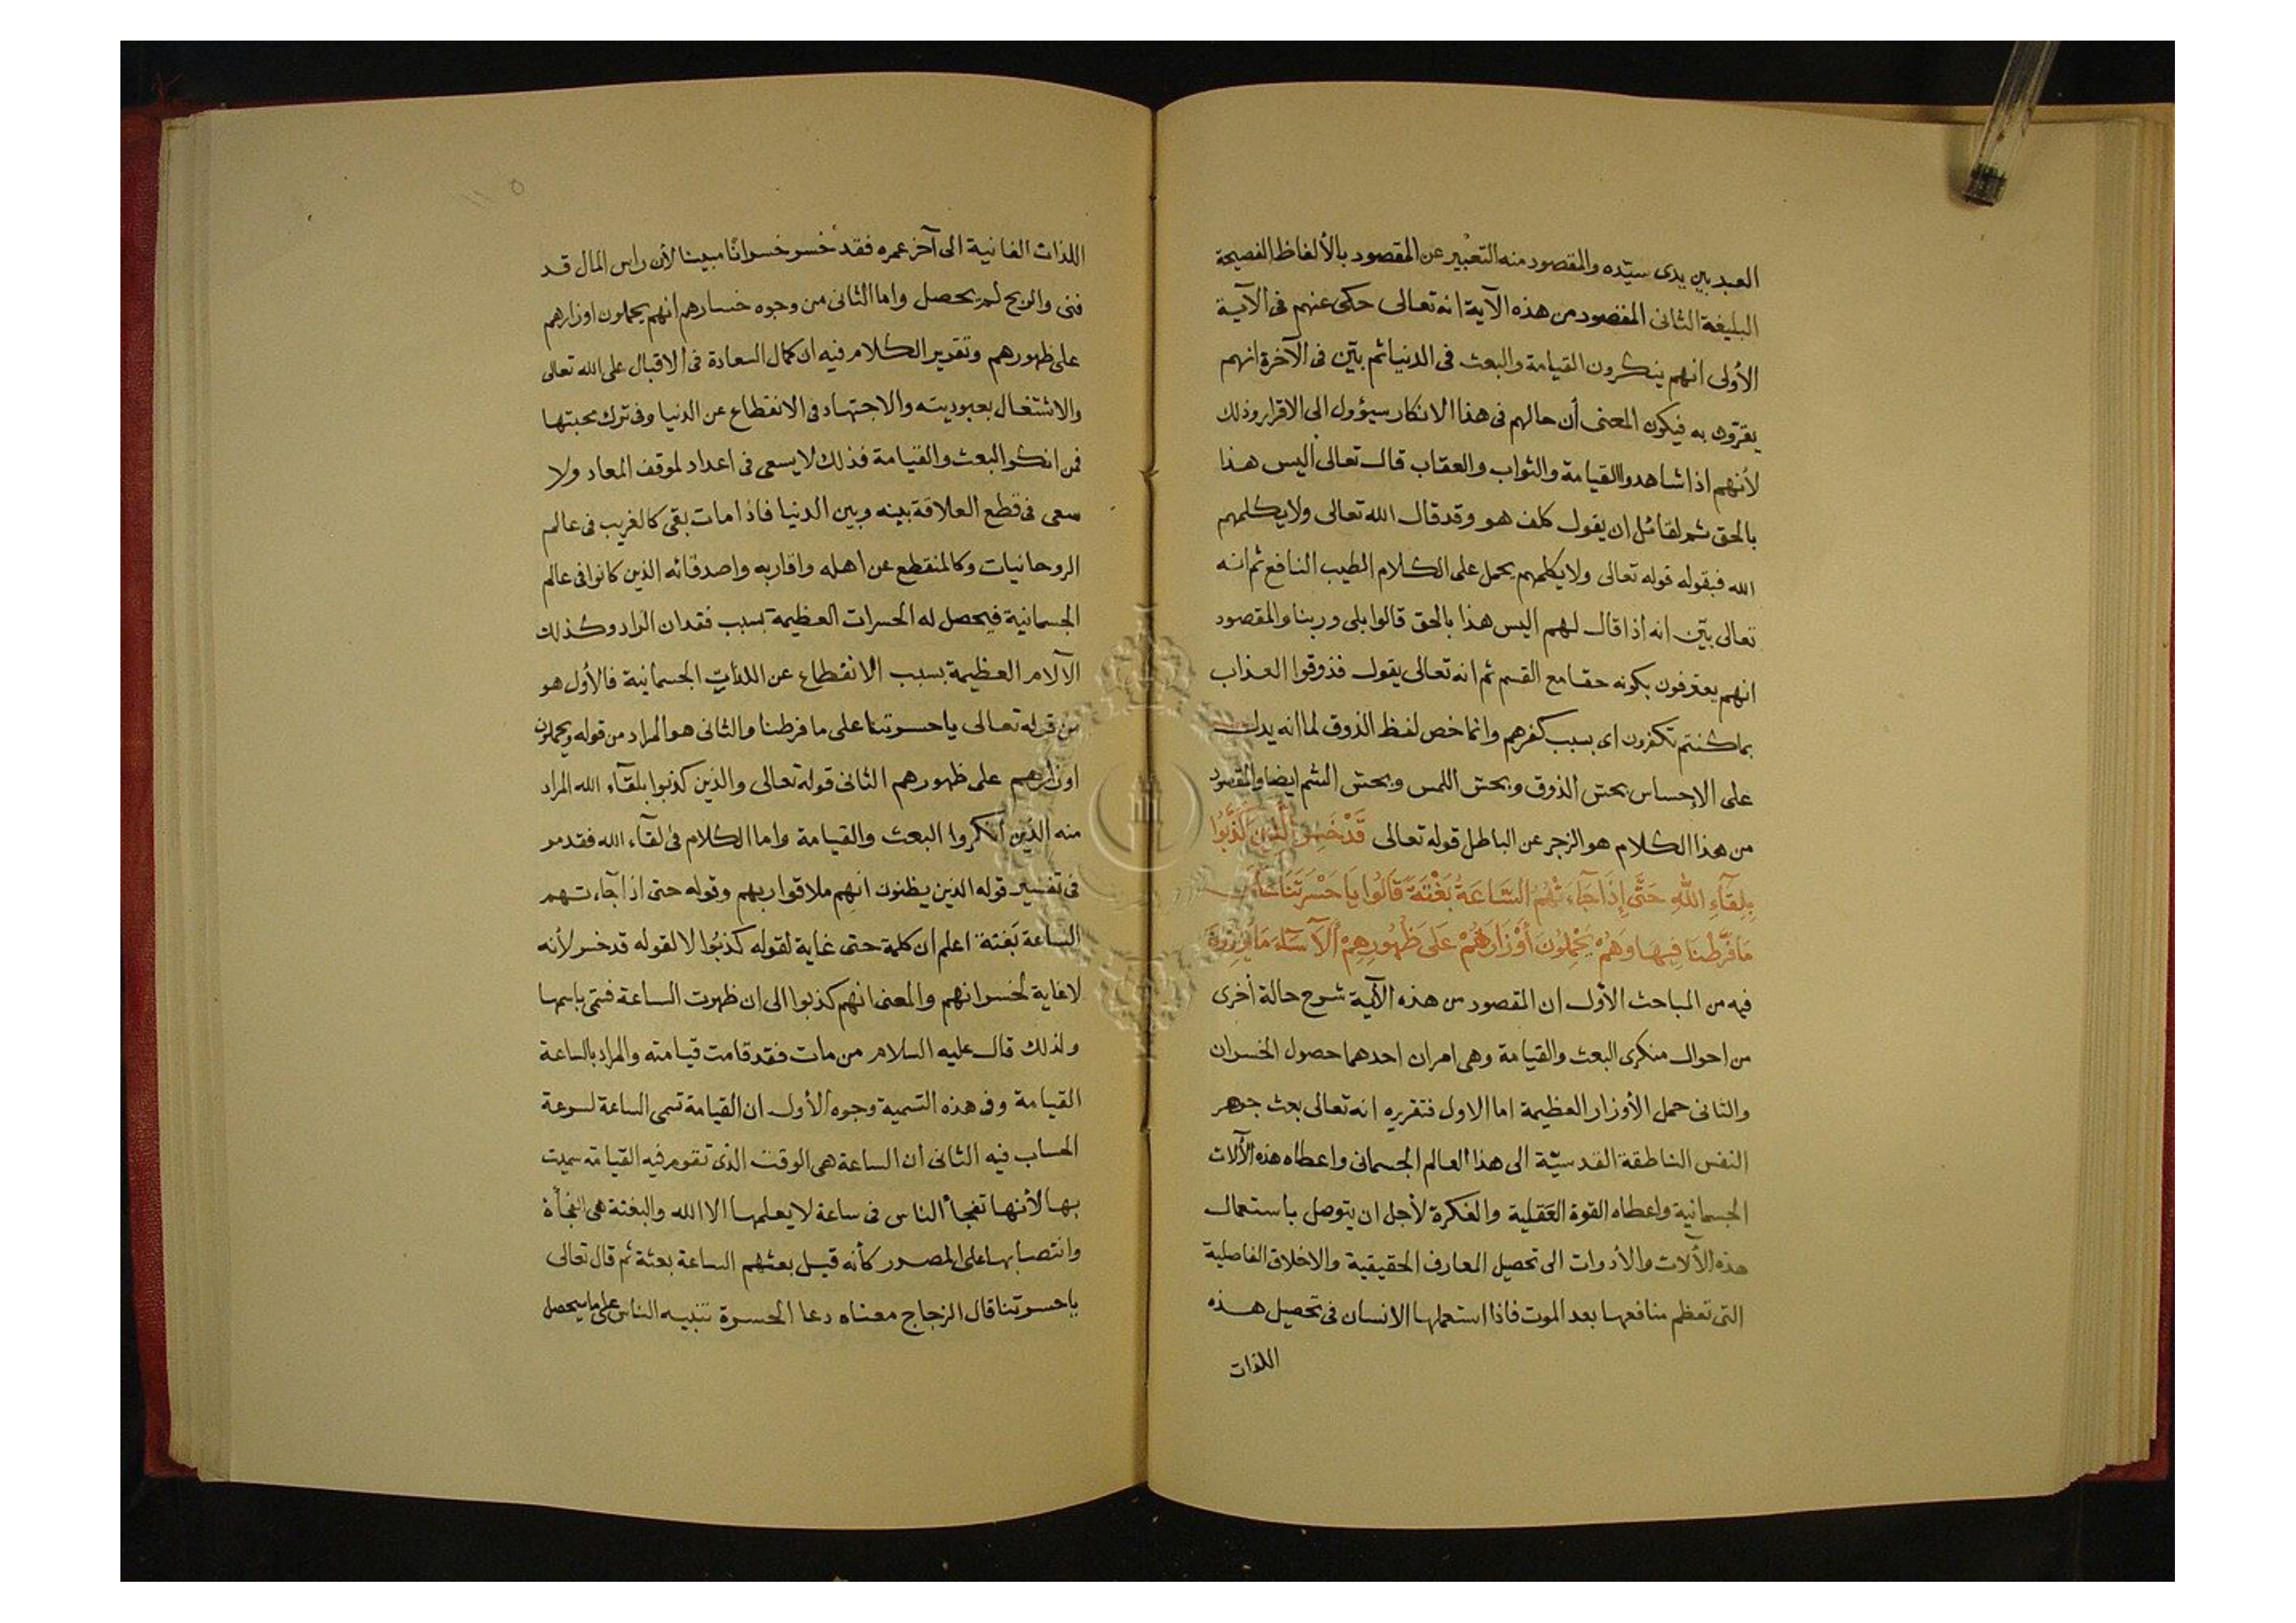 العبد بين يدى سيّده والمقصود منه التعبير عن المقصود بالألفاظ الفصيحة
البليغة الثانى المقصود من هذه الآية انه تعالى حكى عنهم فى الآية
الأولى انهم ينكرون القيامة والبعث فى الدنيا ثم بيّن فى الآخرة انهم
يقرّون به فيكون المعنى أن حالهم فى هذا الانكار سيؤول الى الاقرار وذلك
لأنهم اذا شاهدوا القيامة والثواب والعقاب قال تعالى أليس هذا
بالحق ثم لقائل ان يقول كلف هو وقد قال الله تعالى ولا يكلمهم
الله فبقوله قوله تعالى ولا يكلمهم يحمل على الكلام الطيب النافع ثم انه
تعالى بيّن انه اذا قال لهم اليس هذا بالحق قالوا بلى وربنا والمقصود
انهم يعترفون بكونه حقا مع القسم ثم انه تعالى يقول فذوقوا العذاب
بما كنتم تكفرون اى بسبب كفرهم وانما خص لفظ الذوق لما انه يدل
على الإحساس بحسّ الذوق وبحسّ اللمس وبحسّ الشم ايضا والمقصود
من هذا الكلام هو الزجر عن الباطل قوله تعالى قَدْ خَسِرَ الَّذِينَ كَذَّبُوا
بِلِقَآءِ اللهِ حَتَّى إِذَا جَآءَتْهُمُ السَّاعَةُ بَغْتَةً قَالُوا يَا حَسْرَتَنَا عَلَى
مَا فَرَّطْنَا فِيهَا وَهُمْ يَحْمِلُونَ أَوْزَارَهُمْ عَلَى ظُهُورِهِمْ أَلَا سَآءَ مَا يَزِرُونَ
فيه من المباحث الأول ان المقصود من هذه الآية شرح حالة أخرى
من احوال منكرى البعث والقيامة وهى امران احدهما حصول الخسران
والثانى حمل الأوزار العظيمة اما الاول فتقريره انه تعالى بعث جوهر
النفس الناطقة القدسيّة الى هذا العالم الجسمانى واعطاه هذه الآلات
الجسمانية واعطاه القوة العَقلية والفكرة لأجل ان يتوصل باستعمال
هذه الآلات والأدوات الى تحصيل المعارف الحقيقية والاخلاق الفاضلية
التى تعظم منافعها بعد الموت فاذا استعملها الانسان فى تحصيل هذه
اللذات
اللذات الفانية الى آخر عمره فقد خسر خسرانًا مبينا لأن راس المال قد
فنى والربح لم يحصل واما الثانى من وجوه خسارهم انهم يحملون اوزارهم
على ظهورهم وتقرير الكلام فيه ان كمال السعادة فى الاقبال على الله تعالى
والاشتغال بعبوديته والاجتهاد فى الانقطاع عن الدنيا وفى ترك محبتها
فمن انكر البعث والقيامة فذلك لا يسعى فى اعداد لموقف المعاد ولا
سعى فى قطع العلاقة بينه وبين الدنيا فاذا مات بقى كالغريب فى عالم
الروحانيات وكالمنقطع عن اهله واقاربه واصدقائه الذين كانوا فى عالم
الجسمانية فيحصل له الحسرات العظيمة بسبب فقدان الزاد وكذلك
الآلام العظيمة بسبب الانقطاع عن اللذات الجسمانية فالأول هو
من قوله تعالى يا حسرتنا على ما فرطنا والثانى هو المراد من قوله ويحملون
اوزارهم على ظهورهم الثانى قوله تعالى والذين كذبوا بلقآء الله المراد
منه الذين أنكروا البعث والقيامة واما الكلام فى لقآء الله فقد مر
فى تفسير قوله الذين يظنون انهم ملاقوا ربهم وقوله حتى اذا جآءتهم
الساعة بَغتة اعلم ان كلمة حتى غاية لقوله كذبُوا لا لقوله قد خسر لأنه
لا غاية لخسرانهم والمعنى انهم كذبوا الى ان ظهرت الساعة فسمّى باسمها
ولذلك قال عليه السلام من مات فقد قامت قيامته والمراد بالساعة
القيامة وفى هذه التسمية وجوه الأول ان القيامة تسمى الساعة لسرعة
الحساب فيه الثانى ان الساعة هى الوقت الذى تقوم فيه القيامة سميت
بها لأنها تفجأ الناس فى ساعة لا يعلمها الا الله والبغتة هى الفجأة
وانتصابها على المصدر كأنه قيل بعثهم الساعة بعثة ثم قال تعالى
يا حسرتنا قال الزجاج معناه دعا الحسرة تنبيه الناس على ما سيحصل